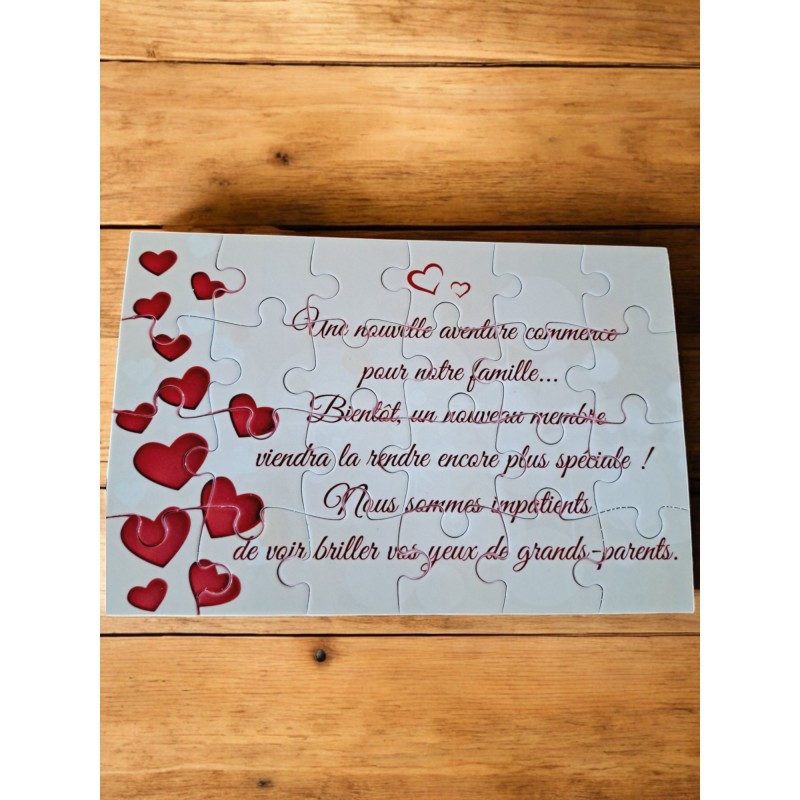 Une nouvelle aventure commerce
pour notre famille...
Bientôt, un nouveau membre
viendra la rendre encore plus spéciale !
Nous sommes impatients
de voir briller vos yeux de grands-parents.